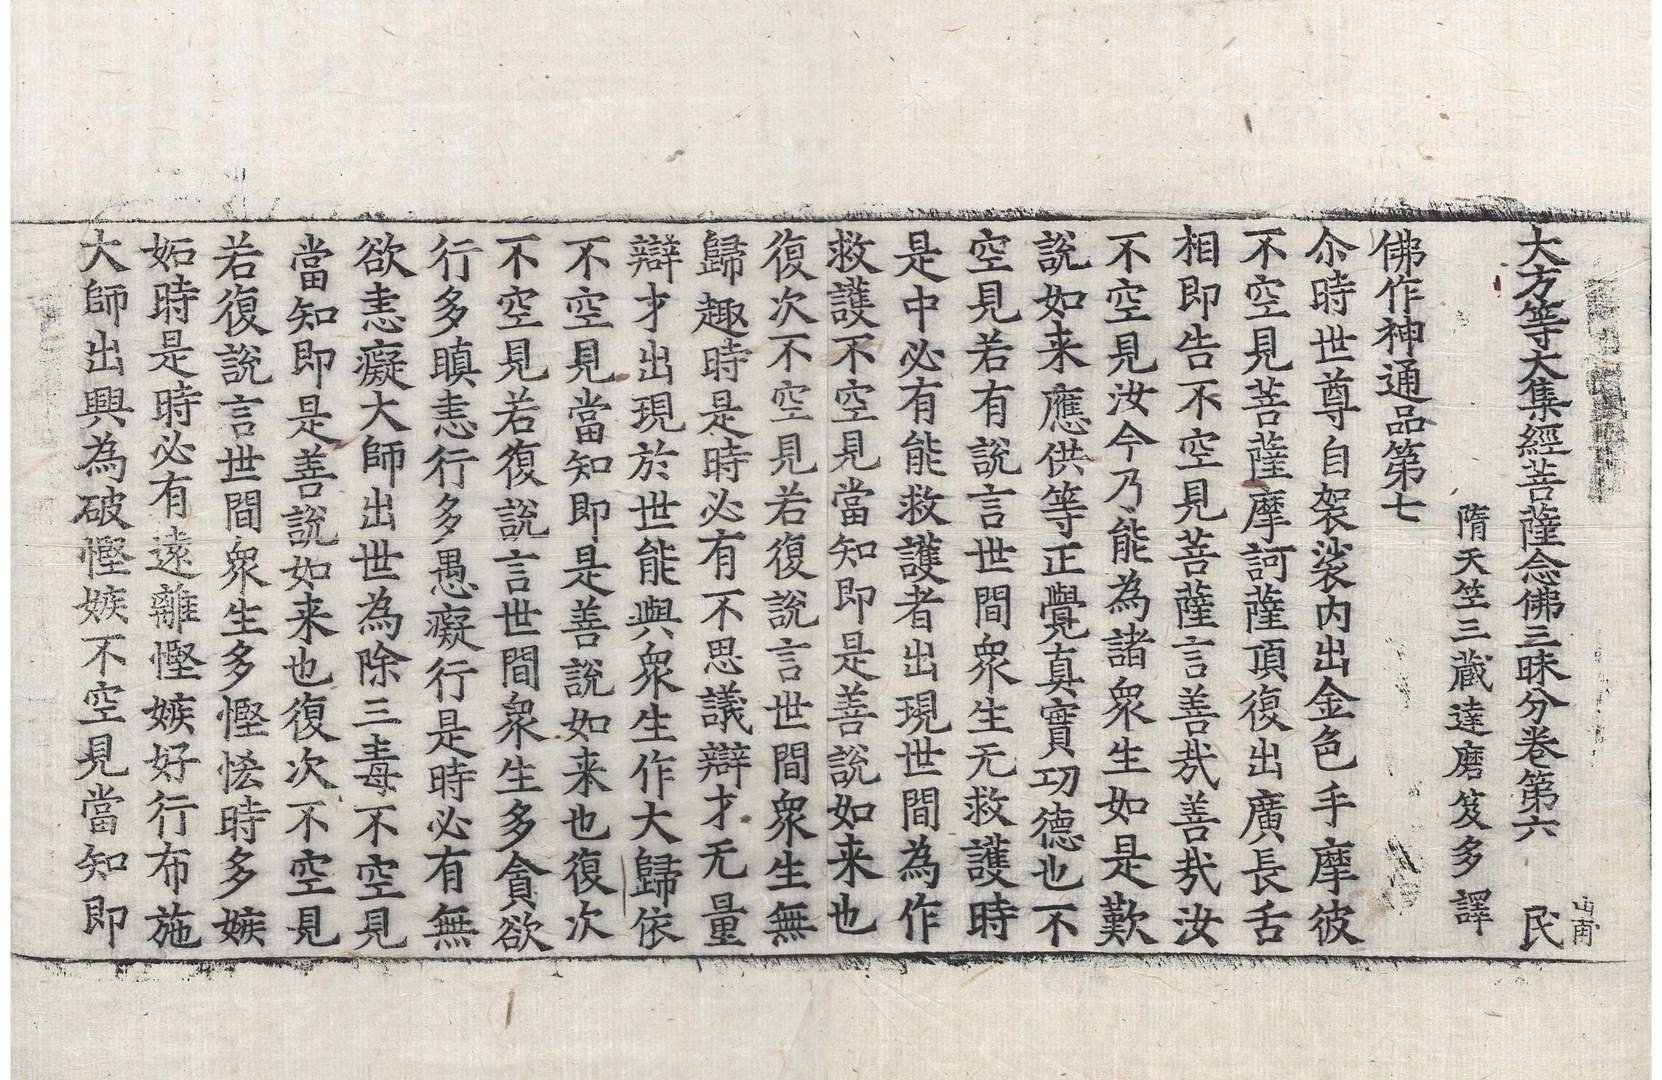 大方等大集經菩薩念佛三昧分卷第六　民
山南
隋天笁三藏達磨笈多譯
佛作神通品第七
尒時世尊自袈裟内出金色手摩彼
不空見菩薩摩訶薩頂復出廣長舌
相即告不空見菩薩言善㢤善㢤汝
不空見汝今乃能為諸衆生如是歎
說如来應供等正覺真實功德也不
空見若有說言世間衆生无救護時
是中必有能救護者出現世間為作
救護不空見當知即是善說如来也
復次不空見若復說言世間衆生無
歸趣時是時必有不思議辯才无量
辯才出現於世能與衆生作大歸依
不空見當知即是善說如来也復次
不空見若復說言世間衆生多貪欲
行多瞋恚行多愚癡行是時必有無
欲恚癡大師出世為除三毒不空見
當知即是善說如来也復次不空見
若復說言世間衆生多慳恡時多嫉
妬時是時必有遠離慳嫉好行布施
大師出興為破慳嫉不空見當知即